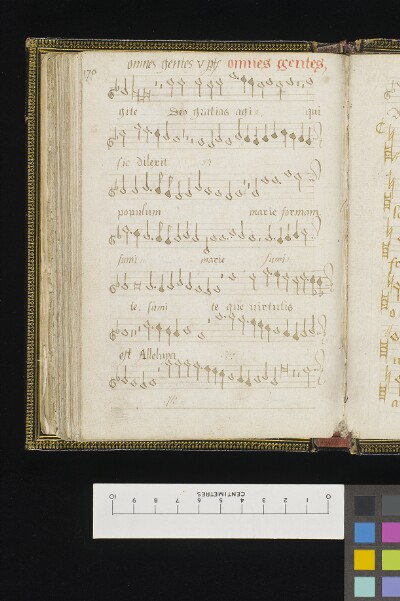 omnes gentes v ps omnes gentes,
gite Deo gratias agi qui
sic dilexit
populum marie formam
sumi marie sumi
te. sumi te que virtutis
est Alleluya
10 9 8 7 6 5 4 3 2 1 0
CENTIMETRES